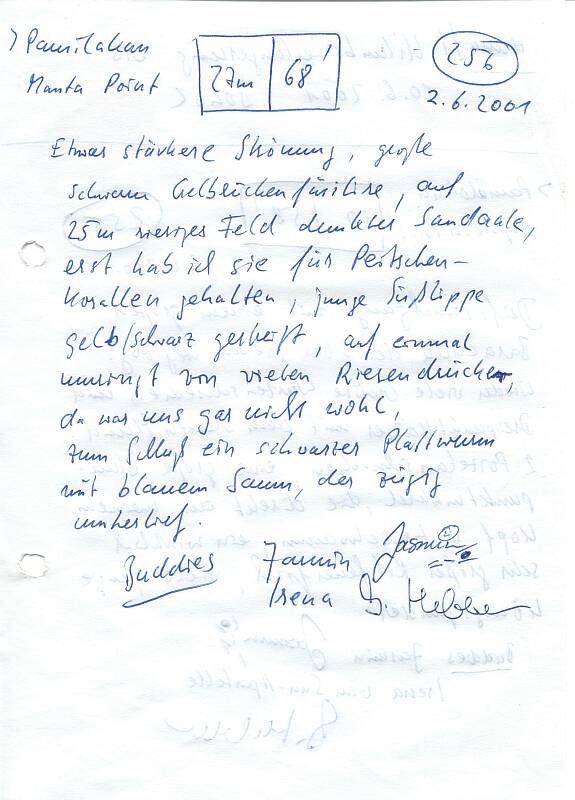 > Pamilakan
Manta Point
27m 68'
256
2.6.2001
Etwas stärkere Strömung, große
Schwarm Gelbrückenfüsiliere, auf
25m riesiges Feld dunkler Sandaale,
erst hab ich sie für Peitschen-
korallen gehalten, junge Süßlippe
gelb/schwarz gestreift, auf einmal
umringt von vielen Riesendrückern,
da war uns gar nicht wohl,
zum Schluß ein schwarzer Plattwurm
mit blauem Saum, der zügig
umherlief.
Buddies Jasmin Jasmin
Irena